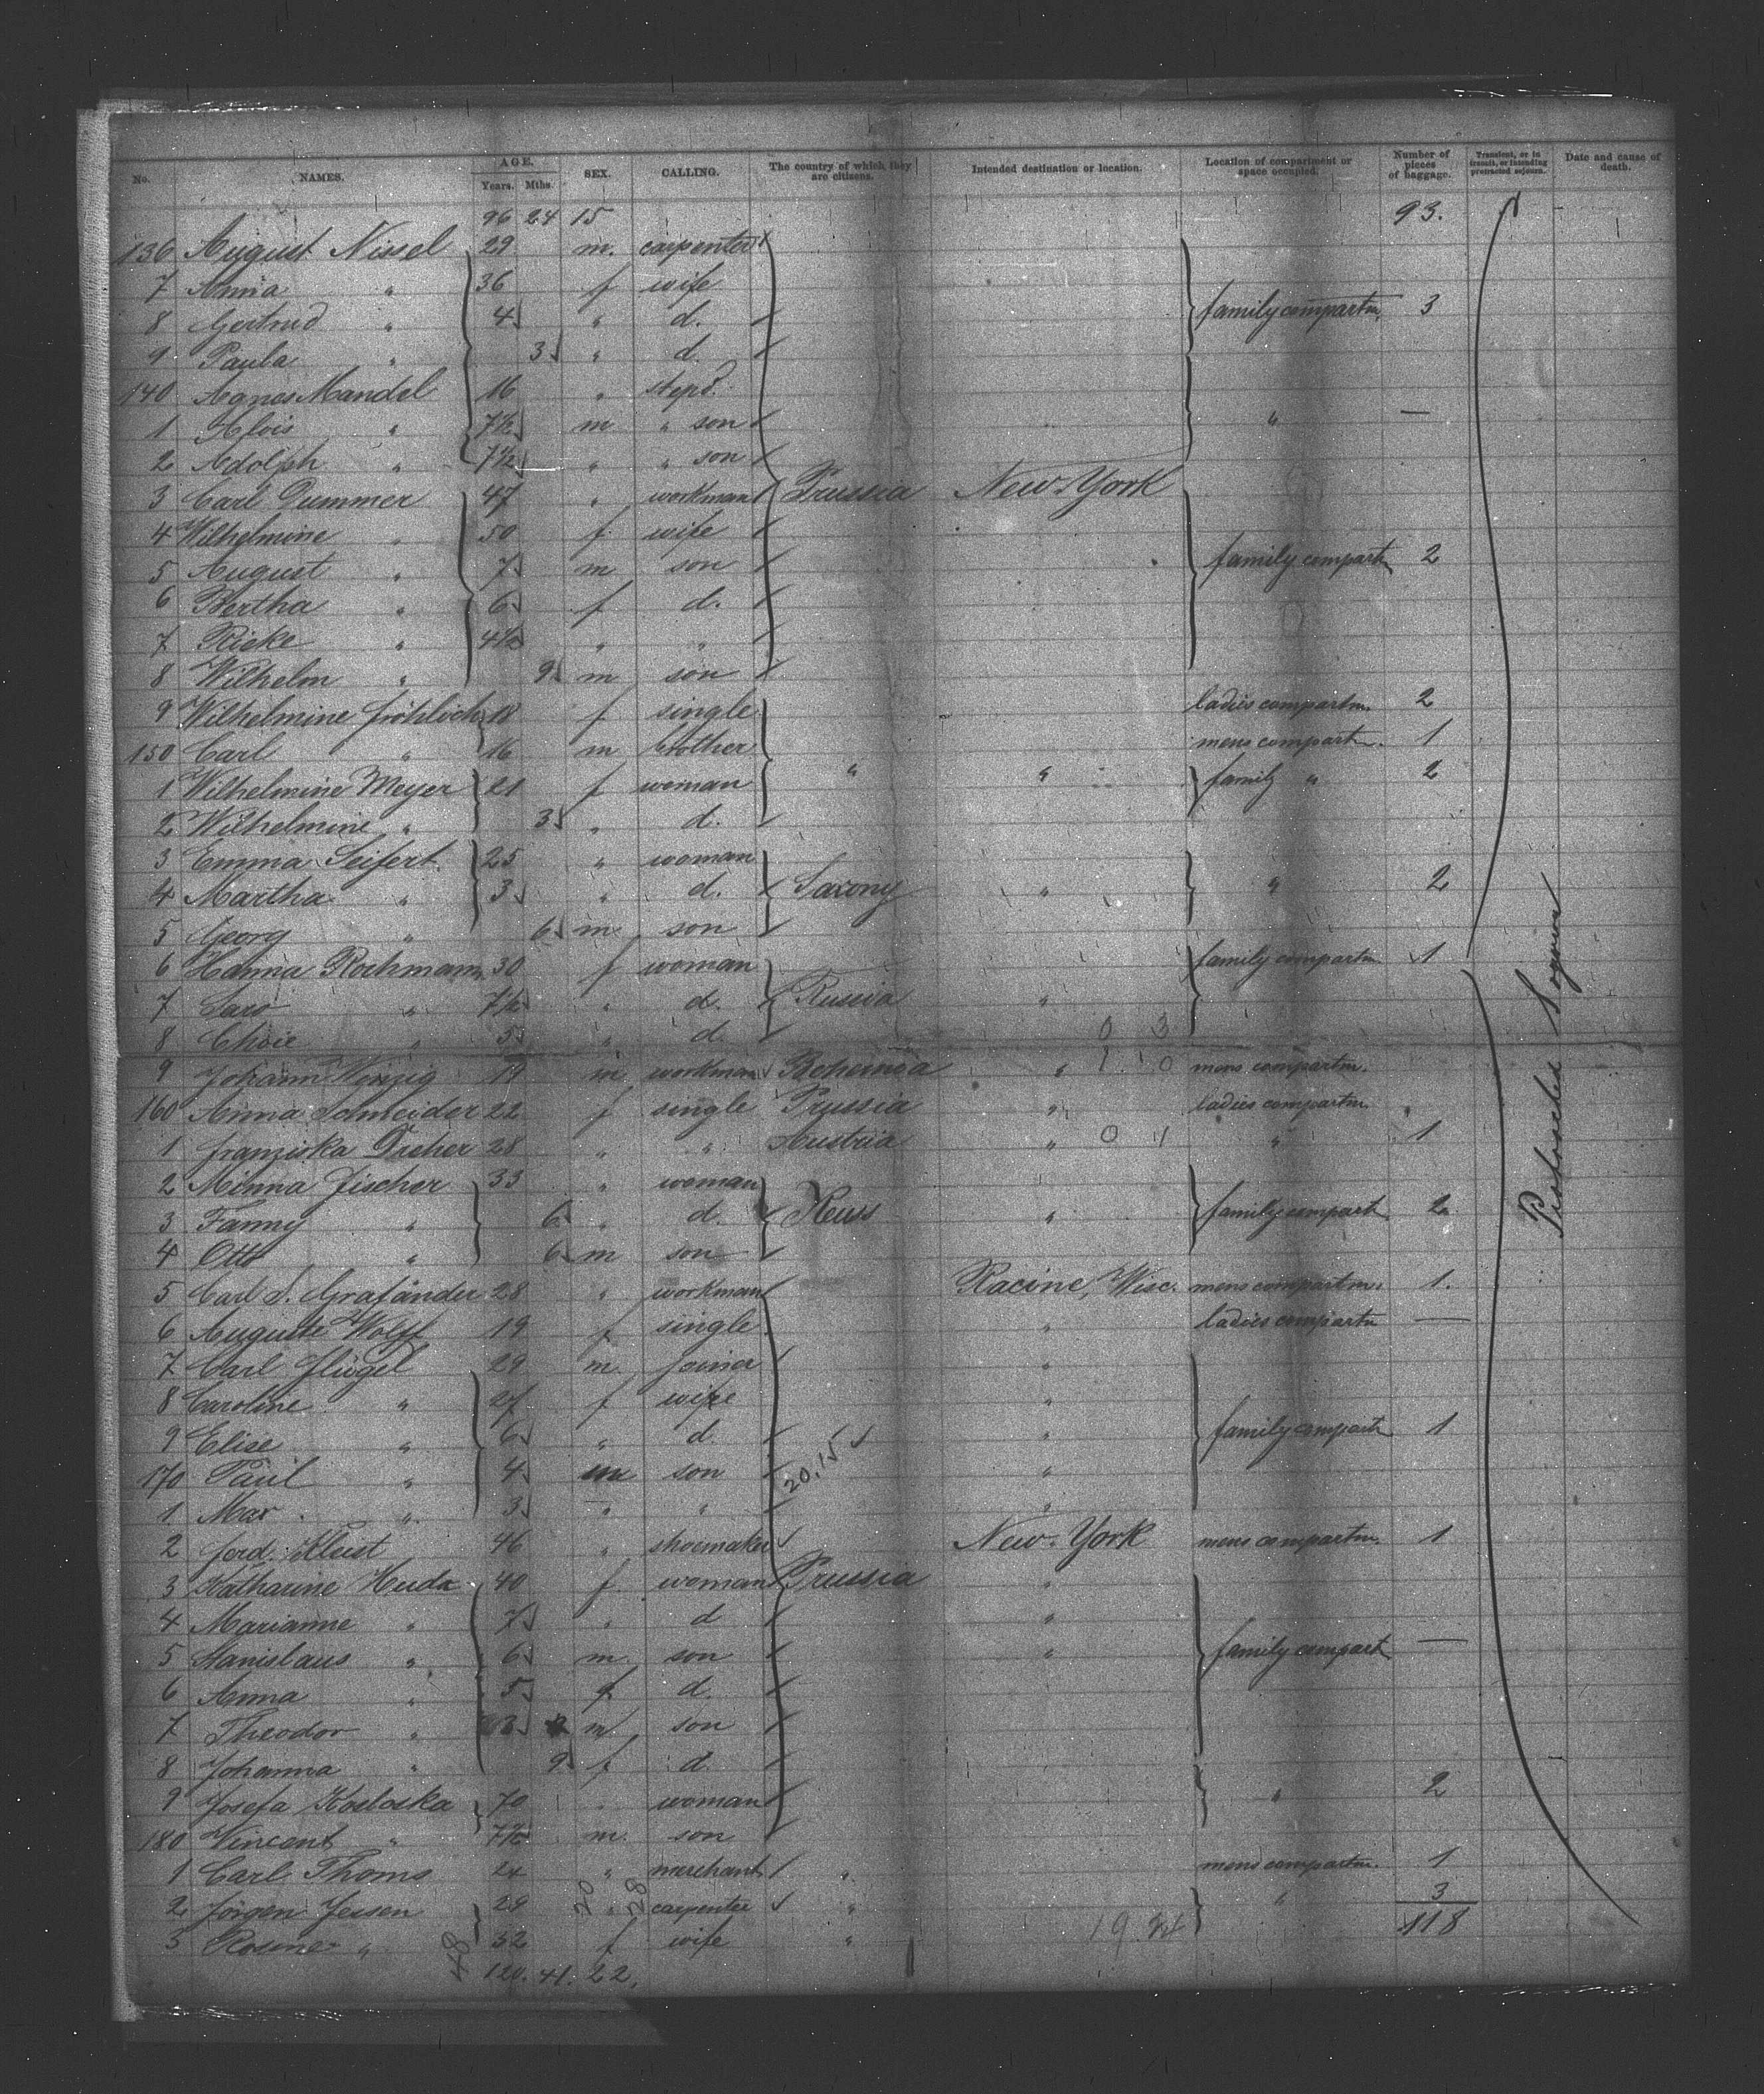 No. NAMES. AGE. Years. Mths. SEX. CALLING. The country of which they are citizens. Intended destination or location. Location of compartment or space occupied. Number of pieces of baggage. Transient, or in transit, or intending protracted sojourn. Date and cause of death.
96 24 15 93.
136 August Nissel 29 m. carpenter
7 Anna " 36 f wife
8 Gertrud " 4 " d. family compartm. 3
9 Paula " 3 " d.
140 Agnes Mandel 16 " stepd.
1 Alois " 7½ m " son " —
2 Adolph " 7½ " " son
3 Carl Dummer 47 " workman Prussia New-York
4 Wilhelmine " 50 f. wife
5 August " 7 m son family compart 2
6 Bertha " 6 f d.
7 Rieke " 4½ " "
8 Wilhelm " 9 m son
9 Wilhelmine Fröhlich 18 f single ladies compartm. 2
150 Carl " 16 m brother mens compartm. 1
1 Wilhelmine Meyer 21 f woman " " family " 2
2 Wilhelmine " 3 " d.
3 Emma Seifert 25 " woman
4 Martha " 3 " d. Saxony " " 2
5 Georg " 6 m son
6 Hanna Rochmann 30 f woman family compartm 1
7 Sara " 7½ " d. Russia "
8 Choie " 5 " d. 0 3
9 Johann Wenzig 19 m workman Bohemia " 1 0 mens compartm.
160 Anna Schneider 22 f single Prussia " ladies compartm. "
1 Franziska Dreher 28 " " Austria " 0 1 " 1
2 Minna Fischer 33 " woman
3 Fanny " 6 " d. Reuss " family compart 2
4 Otto " 6 m son
5 Carl S. Grafänder 28 " workman Racine, Wisc. mens compartm. 1.
6 Auguste Wolff 19 f single " ladies compartm —
7 Carl Flügel 29 m. joiner "
8 Caroline " 27 f wife "
9 Elise " 6 " d. " family compart 1
170 Paul " 4 m son 20.15 "
1 Max " 3 " " "
2 Ferd. Kleist 46 " shoemaker New-York mens compartm. 1
3 Katharine Huda 40 f woman Prussia "
4 Marianne " 7 " d "
5 Stanislaus " 6 m. son " family compart —
6 Anna " 5 f d.
7 Theodor " 3 m. son
8 Johanna " 9 f d.
9 Josefa Kosloska 70 " woman " 2
180 Vincent " 7½ m. son
1 Carl Thoms 24 " merchant " mens compartm. 1
2 Jörgen Jessen 29 " carpenter " " 3
3 Rosine " 32 f wife " 118
120. 41. 22.
48
20 28
19
Protracted Sojourn